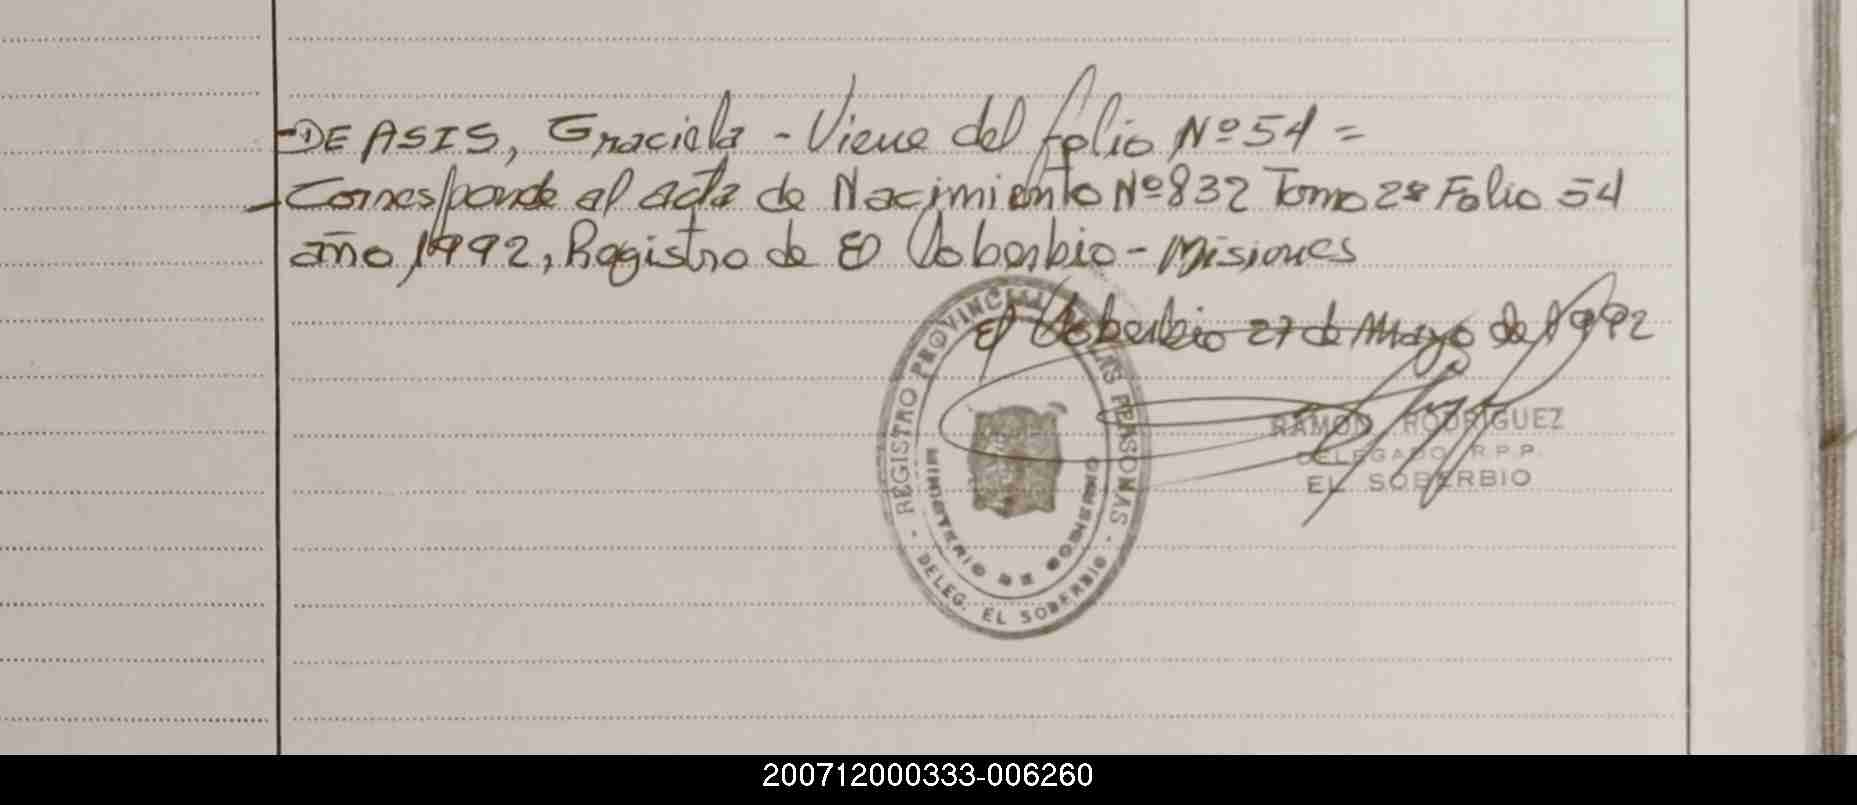 -DE ASIS, Graciela - Viene del folio Nº 54 =
- Corresponde al acta de Nacimiento Nº 832 Tomo 2º Folio 54
año 1992, Registro de El Soberbio - Misiones
El Soberbio 27 de Mayo de 1992
REGISTRO PROVINCIAL LAS PERSONAS
MINISTERIO DE GOBIERNO
- DELEG. EL SOBERBIO -
RAMON RODRIGUEZ
DELEGADO R.P.P.
EL SOBERBIO
200712000333-006260